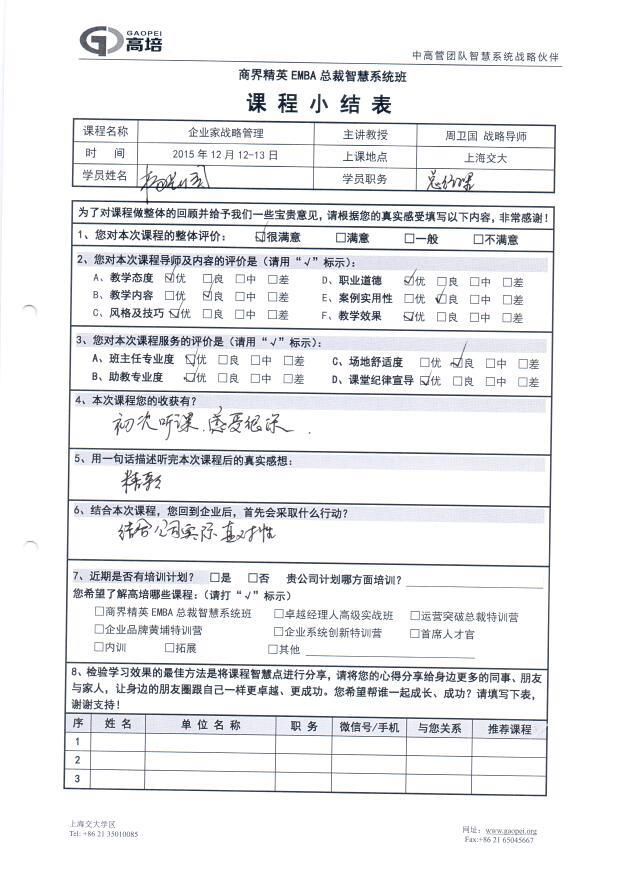 GAOPEI
高培
中高管团队智慧系统战略伙伴
商界精英 EMBA 总裁智慧系统班
课程小结表
课程名称 企业家战略管理 主讲教授 周卫国 战略导师
时 间 2015 年 12 月 12-13 日 上课地点 上海交大
学员姓名 学员职务 总经理
为了对课程做整体的回顾并给予我们一些宝贵意见，请根据您的真实感受填写以下内容，非常感谢！
1、您对本次课程的整体评价： ☑很满意 □满意 □一般 □不满意
2、您对本次课程导师及内容的评价是（请用“√”标示）：
A、教学态度 ☑优 □良 □中 □差 D、职业道德 ☑优 □良 □中 □差
B、教学内容 □优 ☑良 □中 □差 E、案例实用性 □优 ☑良 □中 □差
C、风格及技巧 ☑优 □良 □中 □差 F、教学效果 ☑优 □良 □中 □差
3、您对本次课程服务的评价是（请用“√”标示）：
A、班主任专业度 ☑优 □良 □中 □差 C、场地舒适度 □优 ☑良 □中 □差
B、助教专业度 ☑优 □良 □中 □差 D、课堂纪律宣导 ☑优 □良 □中 □差
4、本次课程您的收获有？
初次听课、感受很深.
5、用一句话描述听完本次课程后的真实感想：
精彩
6、结合本次课程，您回到企业后，首先会采取什么行动？
结合公司实际 对性
7、近期是否有培训计划？ □是 □否 贵公司计划哪方面培训？
您希望了解高培哪些课程：（请打“√”标示）
□商界精英 EMBA 总裁智慧系统班 □卓越经理人高级实战班 □运营突破总裁特训营
□企业品牌黄埔特训营 □企业系统创新特训营 □首席人才官
□内训 □拓展 □其他
8、检验学习效果的最佳方法是将课程智慧点进行分享，请将您的心得分享给身边更多的同事、朋友
与家人，让身边的朋友圈跟自己一样更卓越、更成功。您希望帮谁一起成长、成功？请填写下表，
谢谢支持！
序 姓 名 单 位 名 称 职 务 微信号/手机 与您关系 推荐课程
1
2
3
上海交大学区
Tel: +86 21 35010085
网址：www.gaopei.org
Fax:+86 21 65045667